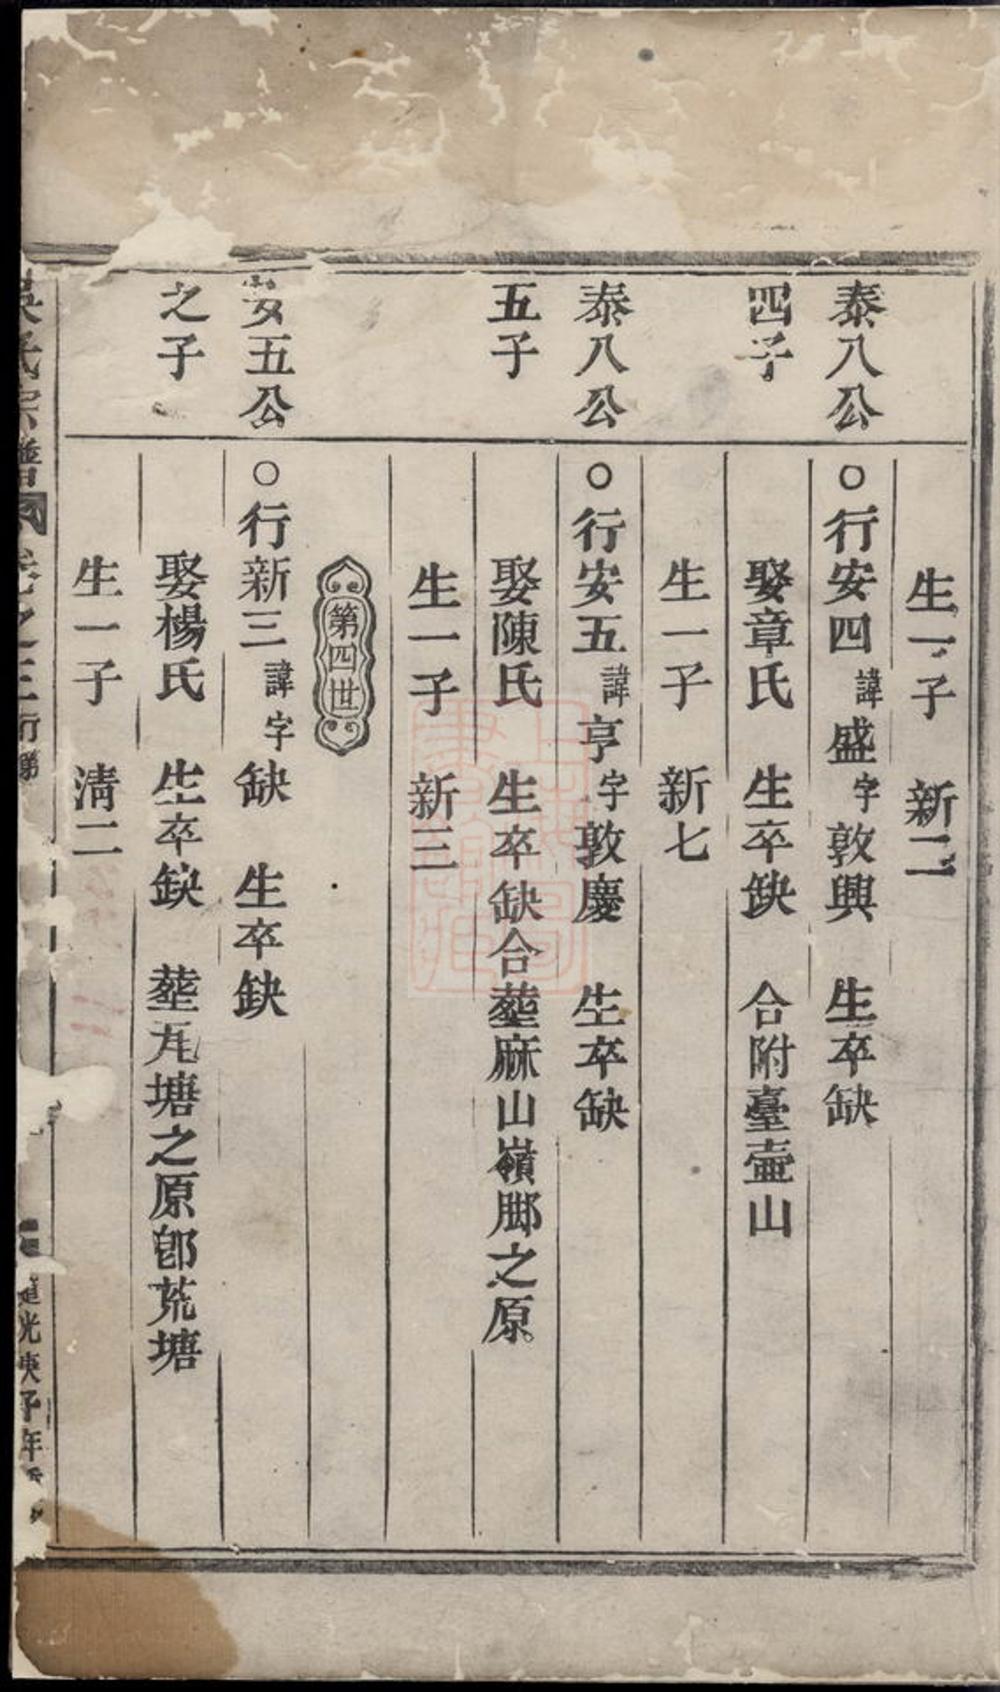 生一子　新二
泰八公　○行安四諱盛字敦興　生卒缺
四子　娶章氏　生卒缺　合附臺壷山
生一子　新七
泰八公　○行安五諱亨字敦慶　生卒缺
五子　娶陳氏　生卒缺合塟麻山嶺脚之原
生一子　新三
第四世
安五公　○行新三諱字缺　生卒缺
之子　娶楊氏　生卒缺　塟尨塘之原卽荒塘
生一子　淸二
吳氏宗譜　卷之三　道光庚子年